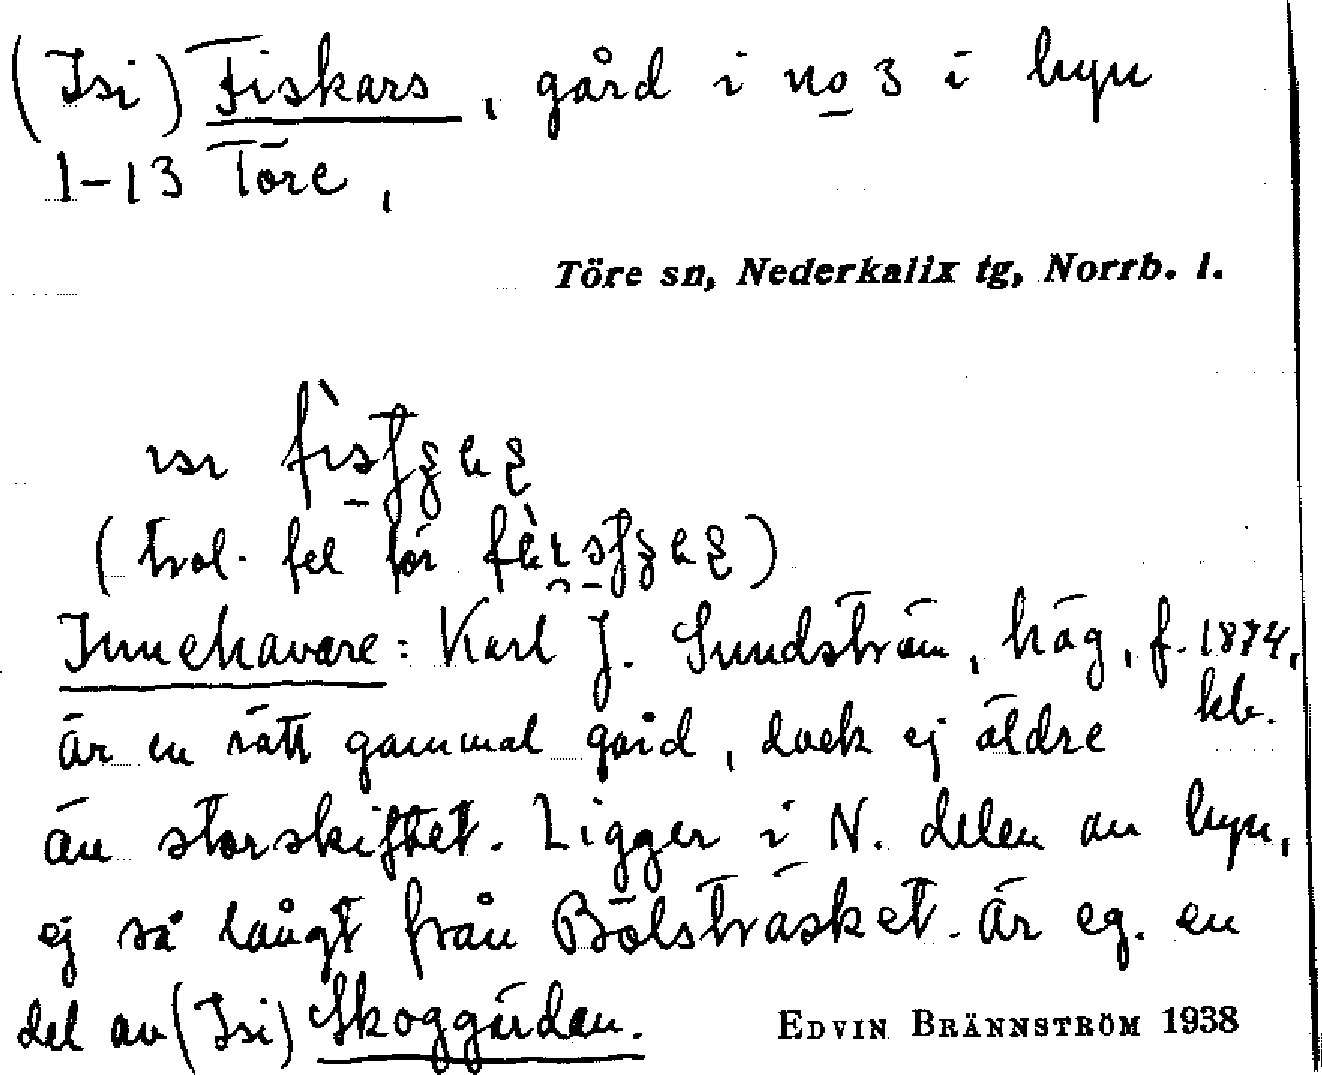 (Isi) Fiskars, gård i no 3 i byn
1-13 Töre,
Töre sn, Nederkalix tg, Norrb. l.
ɪsɪ
(trol. fel för
Innehavare: Karl J. Sundström, häg, f. 1874,
kb.
är en rätt gammal gård, dock ej äldre
än storskiftet. Ligger i N. delen av byn,
ej så långt från Bölsträsket. Är eg. en
del av (Isi) Skoggärdan.
EDVIN BRÄNNSTRÖM 1938